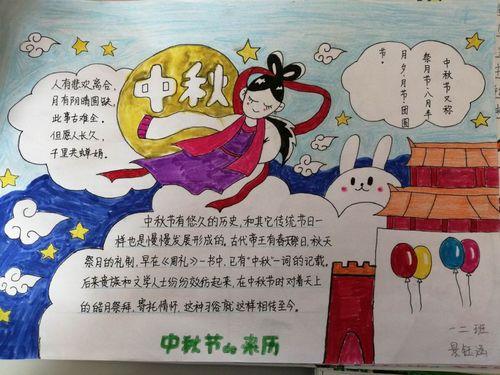 人有悲欢离合,
月有阴晴圆缺,
此事古难全.
但愿人长久,
千里共婵娟.
中秋
中秋节又称
祭月节·八月半·
月夕·月节·团圆
节.
中秋节有悠久的历史,和其它传统节日一
样也是慢慢发展形成的,古代帝王有春天祭日,秋天
祭月的礼制,早在《周礼》一书中,已有"中秋"一词的记载.
后来贵族和文学人士纷纷效仿起来,在中秋节时对着天上
的皓月祭拜,寄托情怀,这种习俗就这样相传至今.
中秋节的来历
一二班
景钰涵